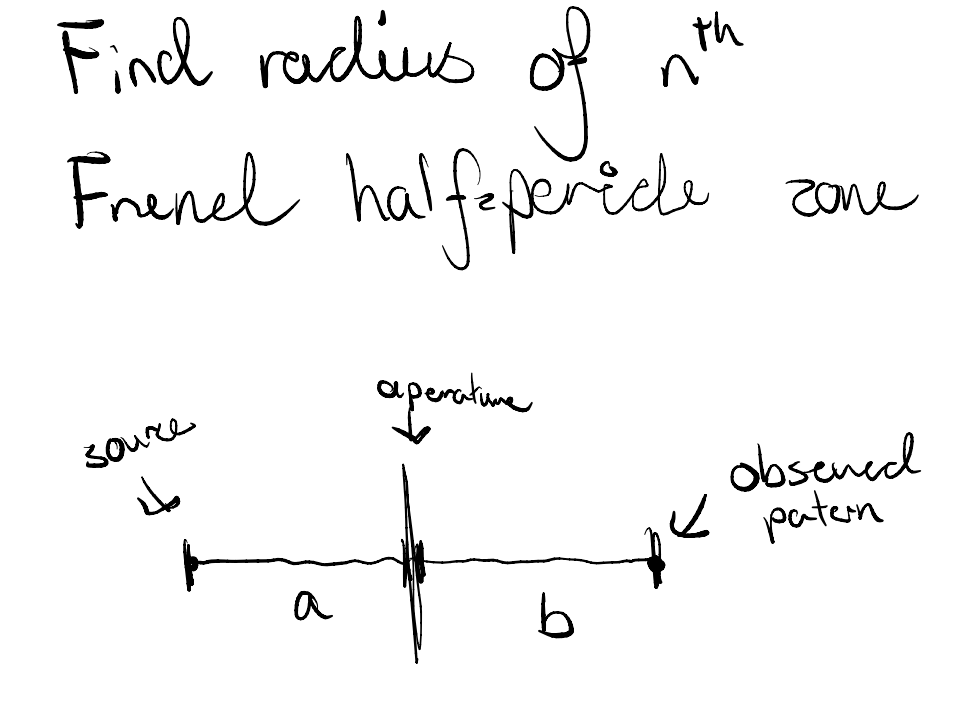 Find radius of nth
Frenel half-periode zone
aperature
source
observed
patern
a
b